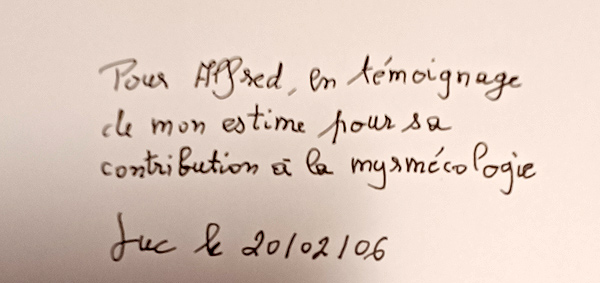 Pour Alfred, en témoignage
de mon estime pour sa
contribution à la myrmécologie
Luc le 20/02/06